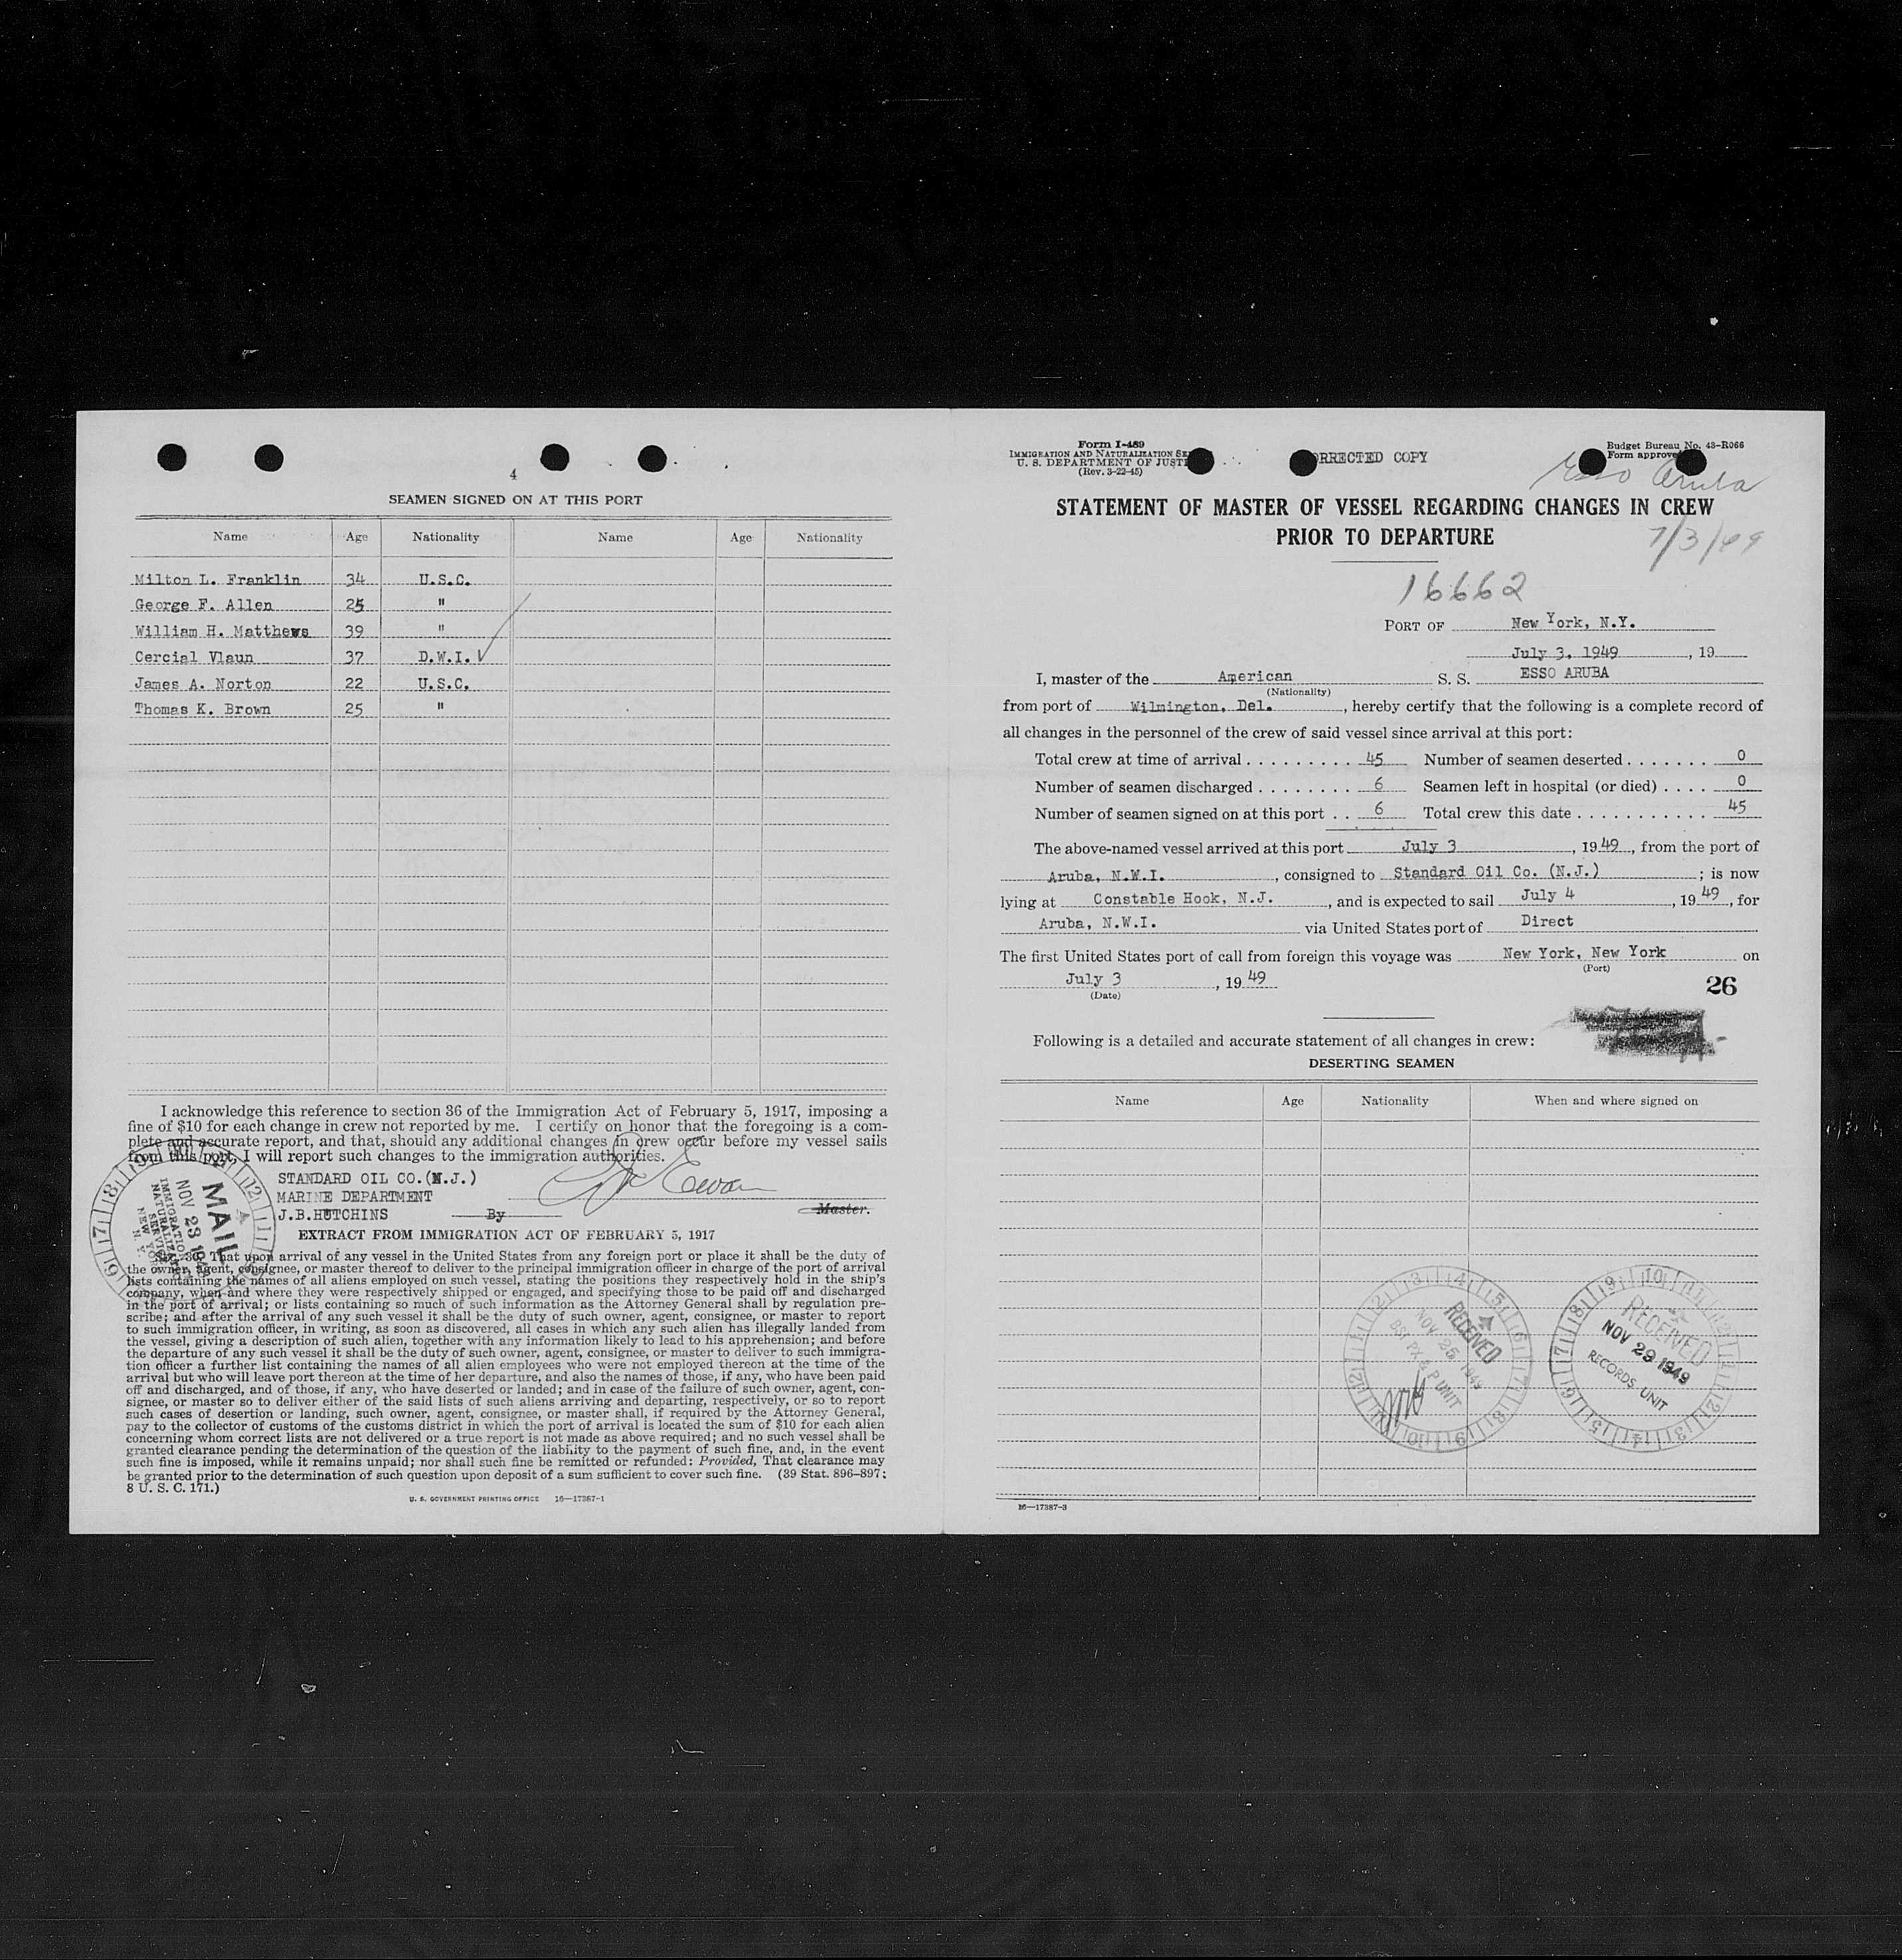 4
SEAMEN SIGNED ON AT THIS PORT
Name Age Nationality Name Age Nationality
Milton L. Franklin 34 U.S.C.
George F. Allen 25 "
William H. Matthews 39 "
Cercial Vlaun 37 D.W.I. ✓
James A. Norton 22 U.S.C.
Thomas K. Brown 25 "
I acknowledge this reference to section 36 of the Immigration Act of February 5, 1917, imposing a
fine of $10 for each change in crew not reported by me. I certify on honor that the foregoing is a com-
plete and accurate report, and that, should any additional changes in crew occur before my vessel sails
from this port, I will report such changes to the immigration authorities.
STANDARD OIL CO.(N.J.)
MARINE DEPARTMENT
J.B.HUTCHINS By Master.
MAIL
NOV 23 1949
IMMIGRATION
NATURALIZATION
SERVICE
NEW YORK
N. Y.
EXTRACT FROM IMMIGRATION ACT OF FEBRUARY 5, 1917
SEC. 36. That upon arrival of any vessel in the United States from any foreign port or place it shall be the duty of
the owner, agent, consignee, or master thereof to deliver to the principal immigration officer in charge of the port of arrival
lists containing the names of all aliens employed on such vessel, stating the positions they respectively hold in the ship's
company, when and where they were respectively shipped or engaged, and specifying those to be paid off and discharged
in the port of arrival; or lists containing so much of such information as the Attorney General shall by regulation pre-
scribe; and after the arrival of any such vessel it shall be the duty of such owner, agent, consignee, or master to report
to such immigration officer, in writing, as soon as discovered, all cases in which any such alien has illegally landed from
the vessel, giving a description of such alien, together with any information likely to lead to his apprehension; and before
the departure of any such vessel it shall be the duty of such owner, agent, consignee, or master to deliver to such immigra-
tion officer a further list containing the names of all alien employees who were not employed thereon at the time of the
arrival but who will leave port thereon at the time of her departure, and also the names of those, if any, who have been paid
off and discharged, and of those, if any, who have deserted or landed; and in case of the failure of such owner, agent, con-
signee, or master so to deliver either of the said lists of such aliens arriving and departing, respectively, or so to report
such cases of desertion or landing, such owner, agent, consignee, or master shall, if required by the Attorney General,
pay to the collector of customs of the customs district in which the port of arrival is located the sum of $10 for each alien
concerning whom correct lists are not delivered or a true report is not made as above required; and no such vessel shall be
granted clearance pending the determination of the question of the liability to the payment of such fine, and, in the event
such fine is imposed, while it remains unpaid; nor shall such fine be remitted or refunded: Provided, That clearance may
be granted prior to the determination of such question upon deposit of a sum sufficient to cover such fine. (39 Stat. 896-897;
8 U. S. C. 171.)
U. S. GOVERNMENT PRINTING OFFICE 16—17387-1
Form I-489
IMMIGRATION AND NATURALIZATION SE
U. S. DEPARTMENT OF JUSTI
(Rev. 3-22-45)
ORRECTED COPY
Budget Bureau No. 43-R066
Form approve
Esso Aruba
STATEMENT OF MASTER OF VESSEL REGARDING CHANGES IN CREW
PRIOR TO DEPARTURE
7/3/49
16662
PORT OF New York, N.Y.
July 3, 1949, 19
I, master of the American S. S. ESSO ARUBA
(Nationality)
from port of Wilmington, Del., hereby certify that the following is a complete record of
all changes in the personnel of the crew of said vessel since arrival at this port:
Total crew at time of arrival . . . . . . . . . . 45 Number of seamen deserted . . . . . . . 0
Number of seamen discharged . . . . . . . . 6 Seamen left in hospital (or died) . . . . 0
Number of seamen signed on at this port . . 6 Total crew this date . . . . . . . . . . . 45
The above-named vessel arrived at this port July 3, 1949, from the port of
Aruba, N.W.I., consigned to Standard Oil Co. (N.J.); is now
lying at Constable Hook, N.J., and is expected to sail July 4, 1949, for
Aruba, N.W.I. via United States port of Direct
The first United States port of call from foreign this voyage was New York, New York on
(Port)
July 3, 1949
(Date)
26
Following is a detailed and accurate statement of all changes in crew:
DESERTING SEAMEN
Name Age Nationality When and where signed on
RECEIVED
NOV 25 1949
BSI PX & P UNIT
RECEIVED
NOV 29 1949
RECORDS UNIT
16—17387-3